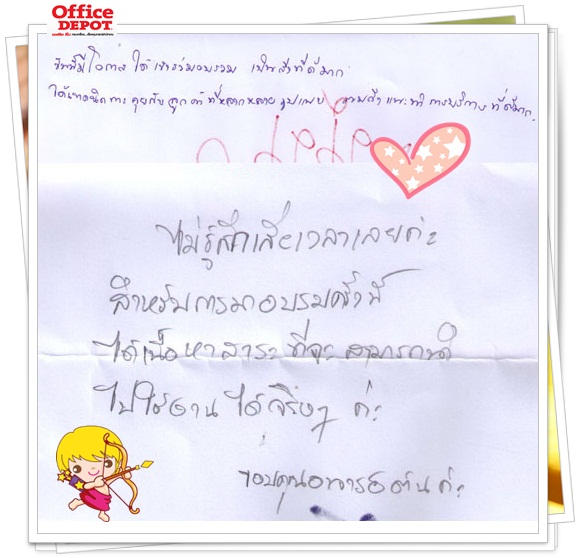 Office
DEPOT
วันนี้มีโอกาส ได้เข้าร่วมอบรม เป็นสิ่งที่ดีมาก
ได้เทคนิคการคุยกับลูกค้าที่หลากหลายรูปแบบ การบริการที่ดีมาก.
ไม่รู้สึกเสียเวลาเลยค่ะ
สำหรับการมาอบรมครั้งนี้
ได้เนื้อหาสาระ ที่จะ สามารถนำ
ไปใช้งาน ได้จริงๆ ค่ะ
ขอบคุณอาจารย์ต้นค่ะ